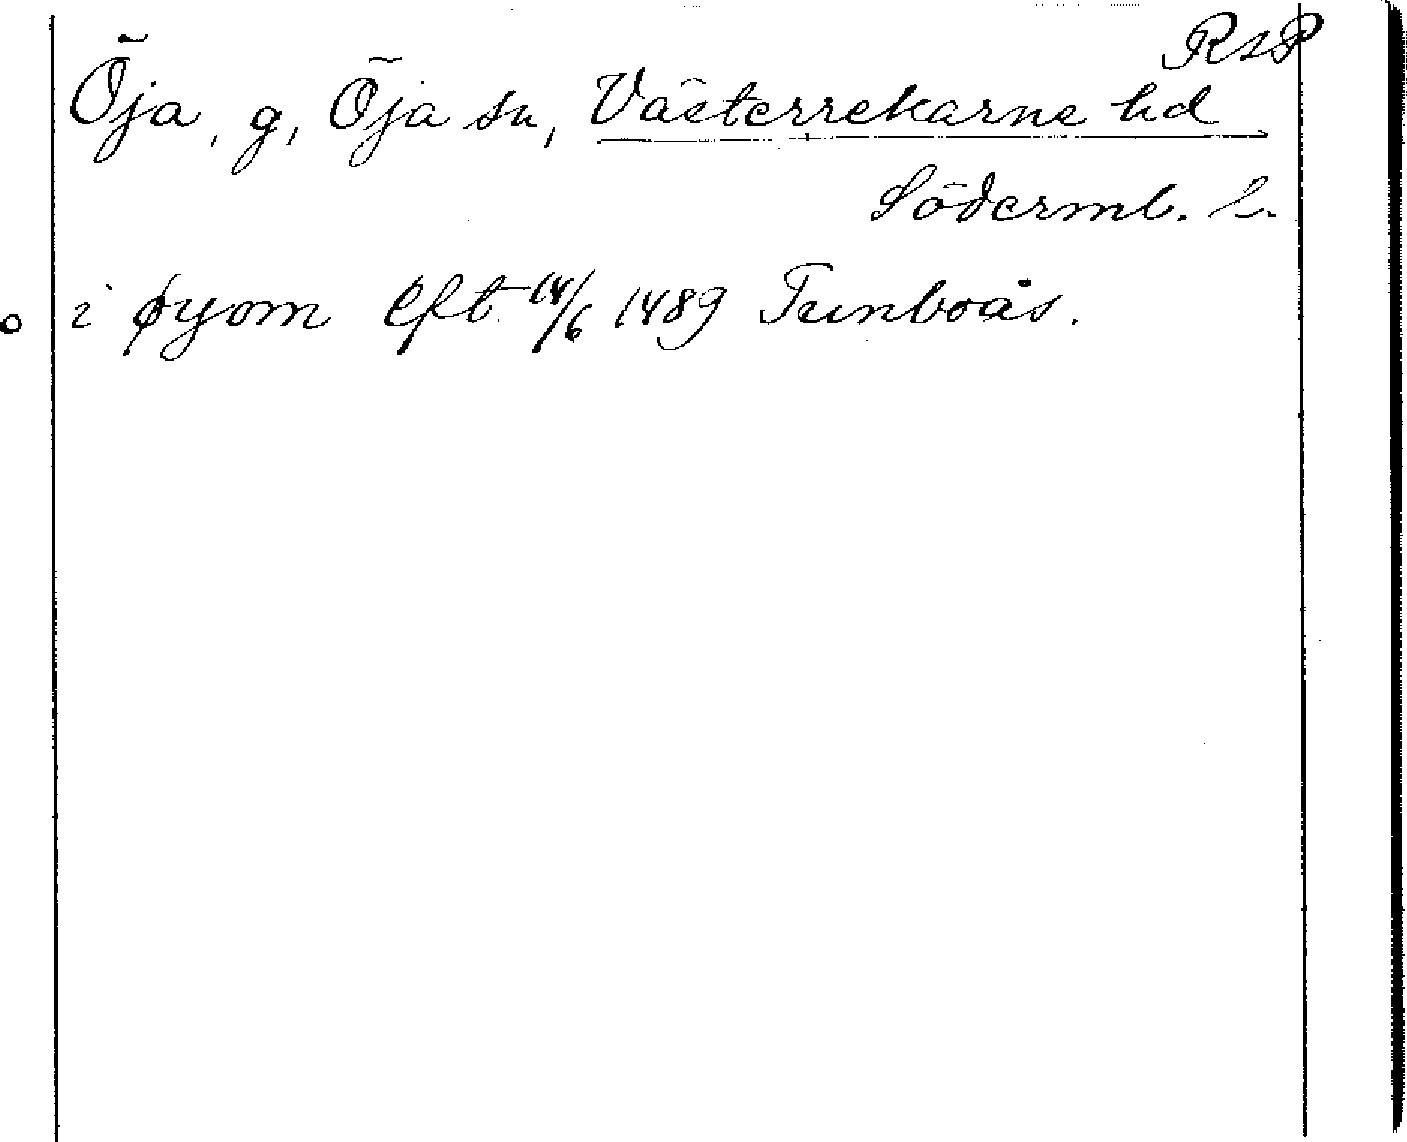 RAP
Öja, g, Öja sn, Västerrekarne hd
Söderml. l.
i øyom Eft 14/6 1489 Tunboås.